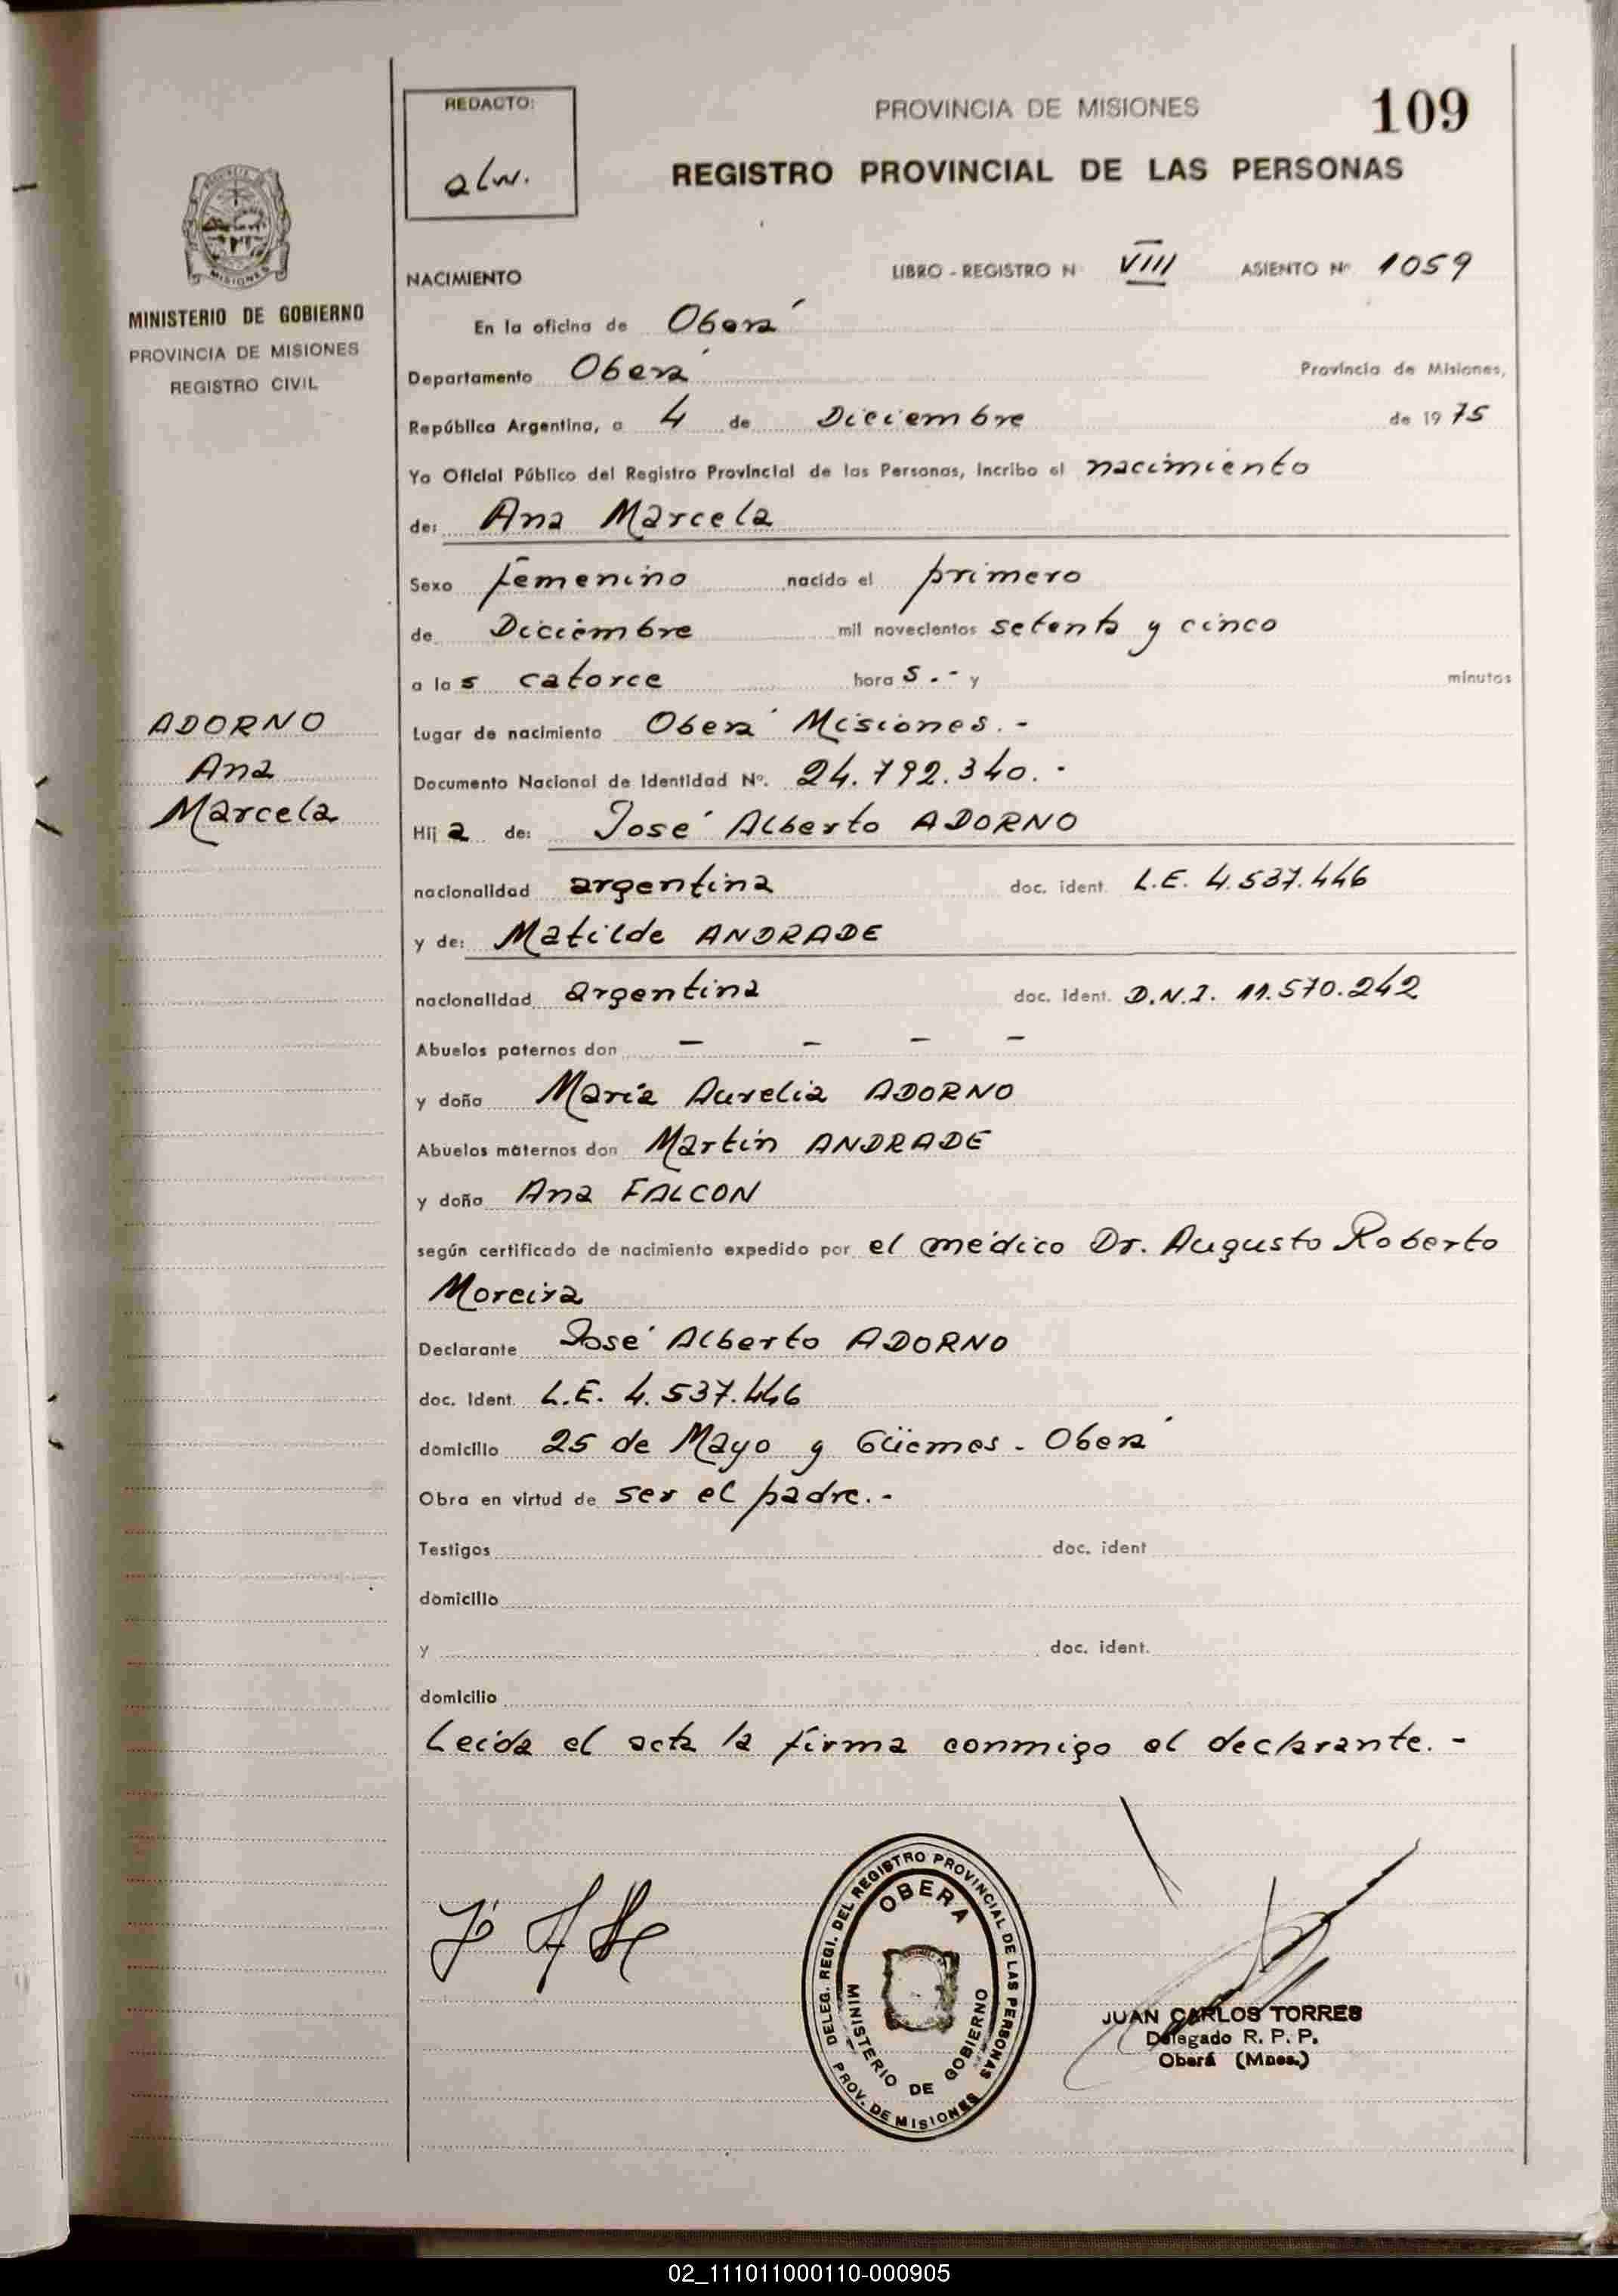 REDACTO:
alw.
PROVINCIA DE MISIONES
109
REGISTRO PROVINCIAL DE LAS PERSONAS
PROVINCIA DE
MISIONES
MINISTERIO DE GOBIERNO
PROVINCIA DE MISIONES
REGISTRO CIVIL
ADORNO
Ana
Marcela
NACIMIENTO LIBRO - REGISTRO N VIII ASIENTO Nº 1059
En la oficina de Oberá
Departamento Oberá Provincia de Misiones,
República Argentina, a 4 de Diciembre de 1975
Yo Oficial Público del Registro Provincial de las Personas, incribo el nacimiento
de: Ana Marcela
Sexo femenino nacido el primero
de Diciembre mil novecientos setenta y cinco
a las catorce horas.- y minutos
Lugar de nacimiento Oberá Misiones.-
Documento Nacional de Identidad Nº. 24.792.340.-
Hija de: José Alberto ADORNO
nacionalidad argentina doc. ident. L.E. 4.537.446
y de: Matilde ANDRADE
nacionalidad argentina doc. ident. D.N.I. 11.570.242
Abuelos paternos don — — — —
y doña María Aurelia ADORNO
Abuelos maternos don Martín ANDRADE
y doña Ana FALCON
según certificado de nacimiento expedido por el médico Dr. Augusto Roberto
Moreira
Declarante José Alberto ADORNO
doc. Ident. L.E. 4.537.446
domicilio 25 de Mayo y Güemes - Oberá
Obra en virtud de ser el padre.-
Testigos doc. ident
domicilio
y doc. ident.
domicilio
Leída el acta la firma conmigo el declarante.-
DELEG. REGI. DEL REGISTRO PROVINCIAL DE LAS PERSONAS
OBERA
MINISTERIO DE GOBIERNO
PROV. DE MISIONES
JUAN CARLOS TORRES
Delegado R. P. P.
Oberá (Mnes.)
02_111011000110-000905